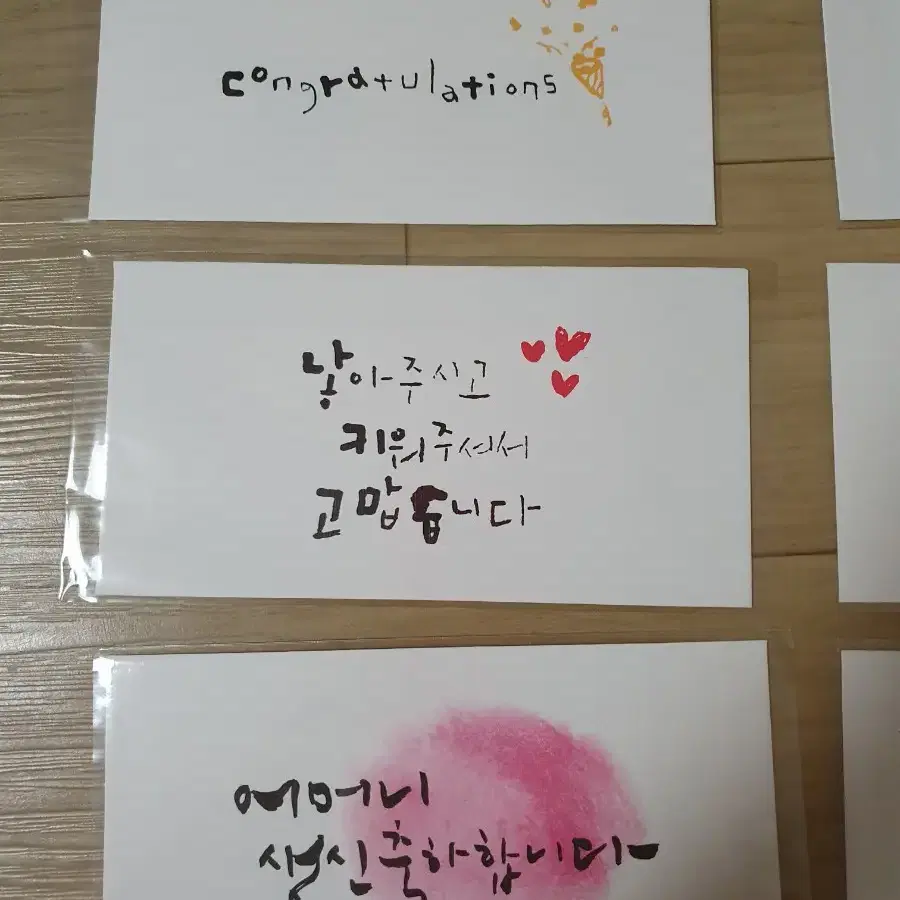 congratulations
낳아주시고
키워주셔서
고맙습니다
어머니
생신축하합니다